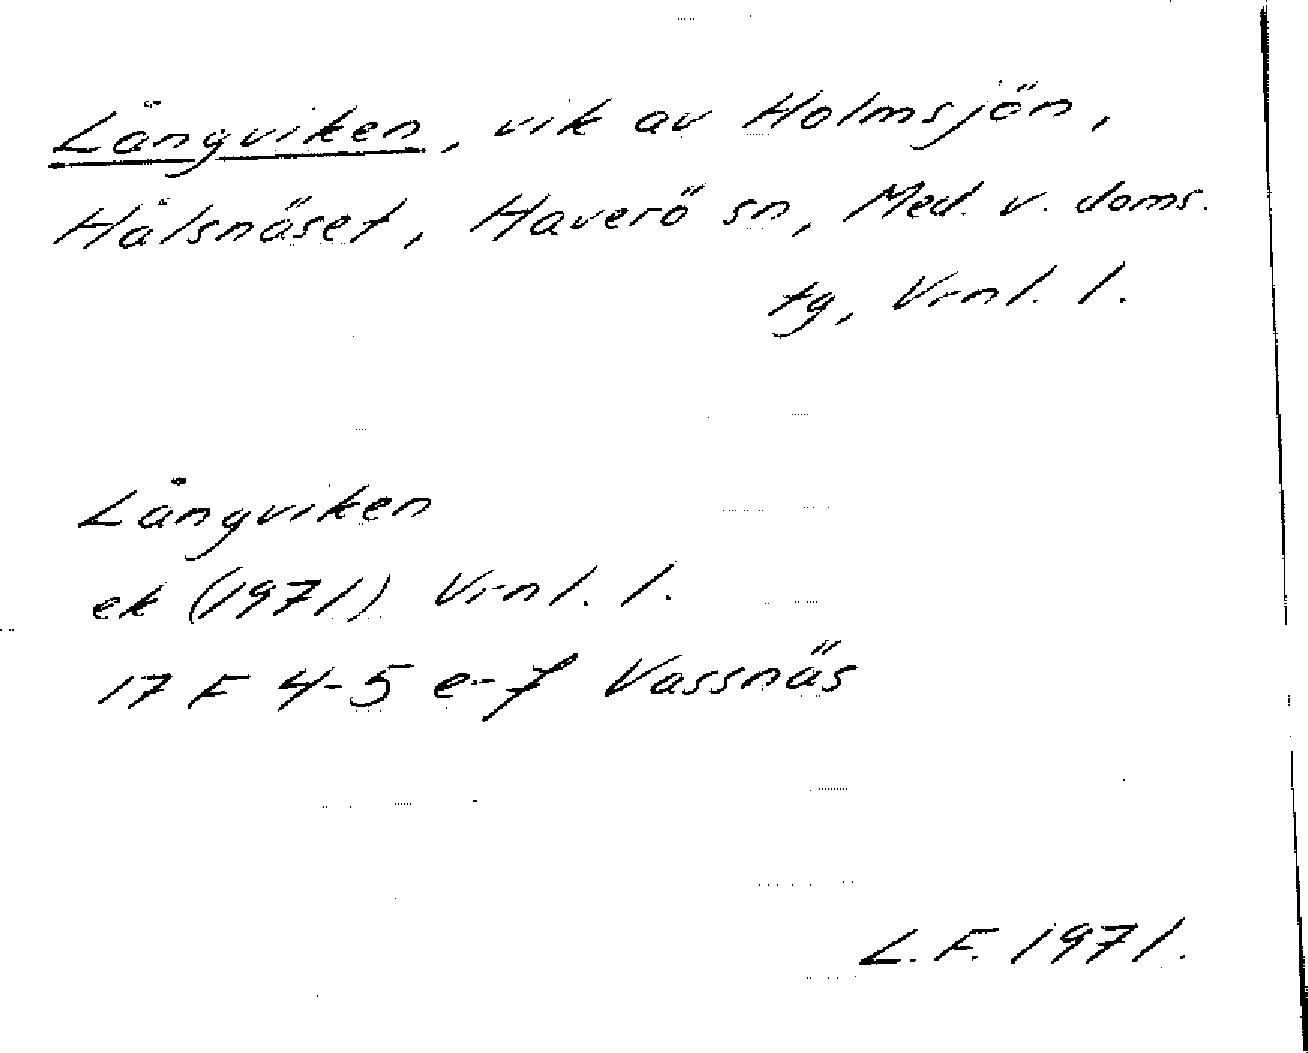 Långviken, vik av Holmsjön,
Hålsnäset, Haverö sn, Med. v. doms.
tg, Vrnl. l.
Långviken
ek (1971) Vrnl. l.
17 F 4-5 e-f Vassnäs
L.F. 1971.